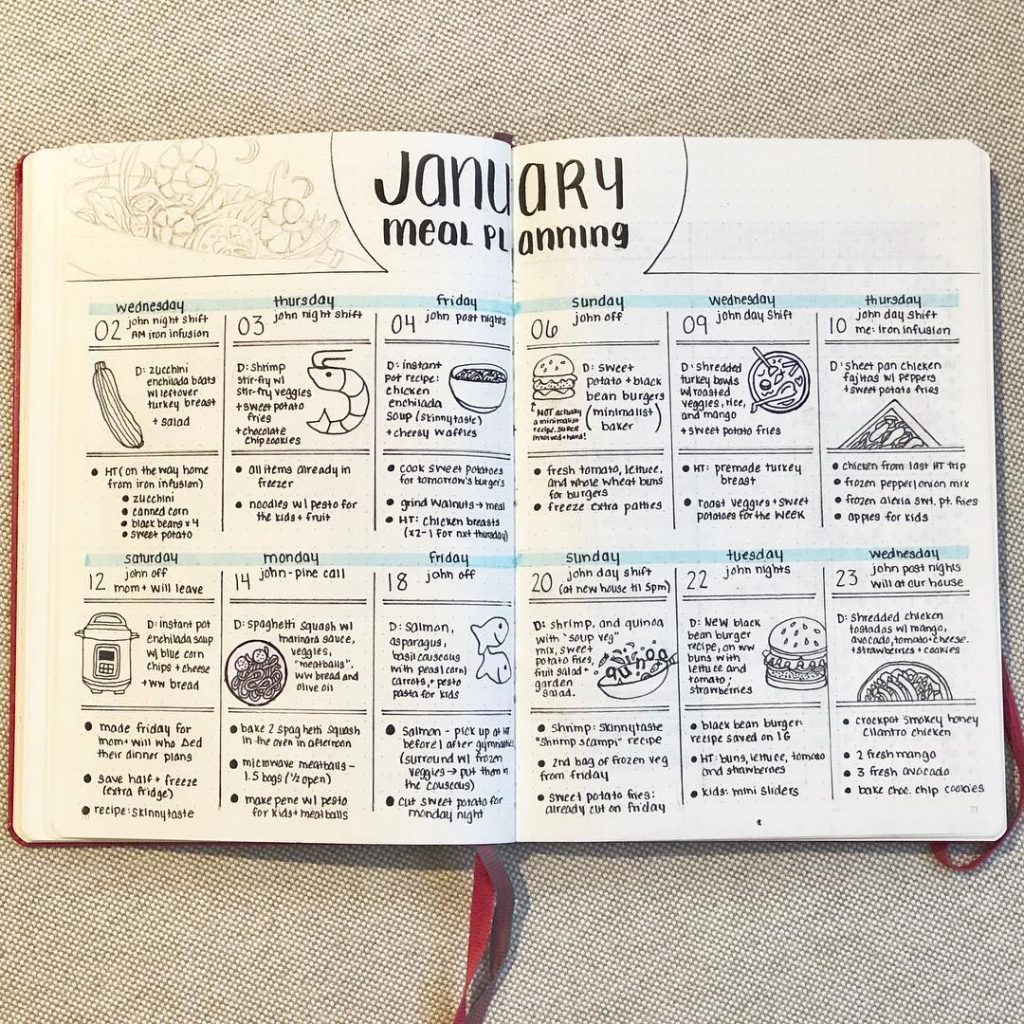 January
meal planning
wednesday
02 john night shift
AM iron infusion
D: zucchini
enchilada boats
w/ leftover
turkey breast
+ salad
• HT (on the way home
from iron infusion)
• zucchini
• canned corn
• black beans x 4
• sweet potato
thursday
03 john night shift
D: shrimp
stir-fry w/
stir-fry veggies
+ sweet potato
fries
+ chocolate
chip cookies
• all items already in
freezer
• noodles w/ pesto for
the kids + fruit
friday
04 john post nights
D: instant
pot recipe:
chicken
enchilada
soup (skinnytaste)
+ cheesy waffles
• cook sweet potatoes
for tomorrow's burgers
• grind walnuts → meal
• HT: chicken breasts
(x2-1 for nxt thursday)
sunday
06 john off
D: sweet
potato + black
bean burgers
(minimalist
baker)
NOT actually
a minimalist
recipe, super
involved + hard!
• fresh tomato, lettuce,
and whole wheat buns
for burgers
• freeze extra patties
wednesday
09 john day shift
D: shredded
turkey bowls
w/ roasted
veggies, rice,
and mango
+ sweet potato fries
• HT: premade turkey
breast
• roast veggies + sweet
potatoes for the week
thursday
10 john day shift
me: iron infusion
D: sheet pan chicken
fajitas w/ peppers
+ sweet potato fries
• chicken from last HT trip
• frozen pepper/onion mix
• frozen alexia swt. pt. fries
• apples for kids
saturday
12 john off
mom + will leave
D: instant pot
enchilada soup
w/ blue corn
chips + cheese
+ ww bread
• made friday for
mom + will who had
their dinner plans
• save half + freeze
(extra fridge)
• recipe: skinnytaste
monday
14 john - pine call
D: spaghetti squash w/
marinara sauce,
veggies,
"meatballs",
ww bread and
olive oil
• bake 2 spaghetti squash
in the oven in afternoon
• microwave meatballs -
1.5 bags (1/2 open)
• make pene w/ pesto
for kids + meatballs
friday
18 john off
D: salmon,
asparagus,
basil couscous
with peas/corn/
carrots, + pesto
pasta for kids
• salmon - pick up at HT
before/after gymnastics
(surround w/ frozen
veggies → put them in
the couscous)
• cut sweet potato for
monday night
sunday
20 john day shift
(at new house til 5pm)
D: shrimp, and quinoa
with "soup veg"
mix, sweet
potato fries,
fruit salad +
garden
salad.
• shrimp: skinnytaste
"shrimp scampi" recipe
• 2nd bag of frozen veg
from friday
• sweet potato fries:
already cut on friday
tuesday
22 john nights
D: new black
bean burger
recipe, on ww
buns with
lettuce and
tomato;
strawberries
• black bean burger
recipe saved on IG
• HT: buns, lettuce, tomato
and strawberries
• kids: mini sliders
wednesday
23 john post nights
will at our house
D: shredded chicken
tostadas w/ mango,
avocado, tomato + cheese.
+ strawberries + cookies
• crockpot smokey honey
cilantro chicken
• 2 fresh mango
• 3 fresh avocado
• bake choc. chip cookies